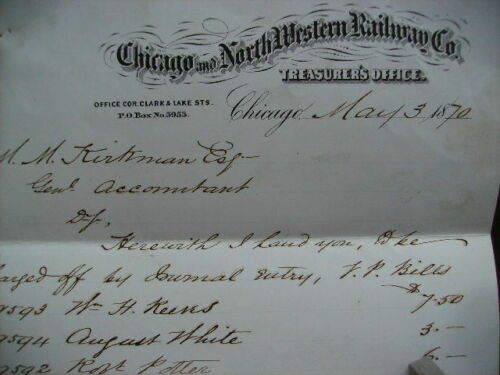 Chicago and North Western Railway Co.
TREASURER'S OFFICE.
OFFICE COR. CLARK & LAKE STS.
P.O. Box No. 5955.
Chicago, May 3 1870
M. M. Kirkman Esq
Genl. Accountant
Dr,
Herewith I hand you, to be
arged off by Journal entry, V. P. Bills
9593 Wm H. Reeves $7.50
9594 August White 3.—
9592 Robt. Potter 6.—